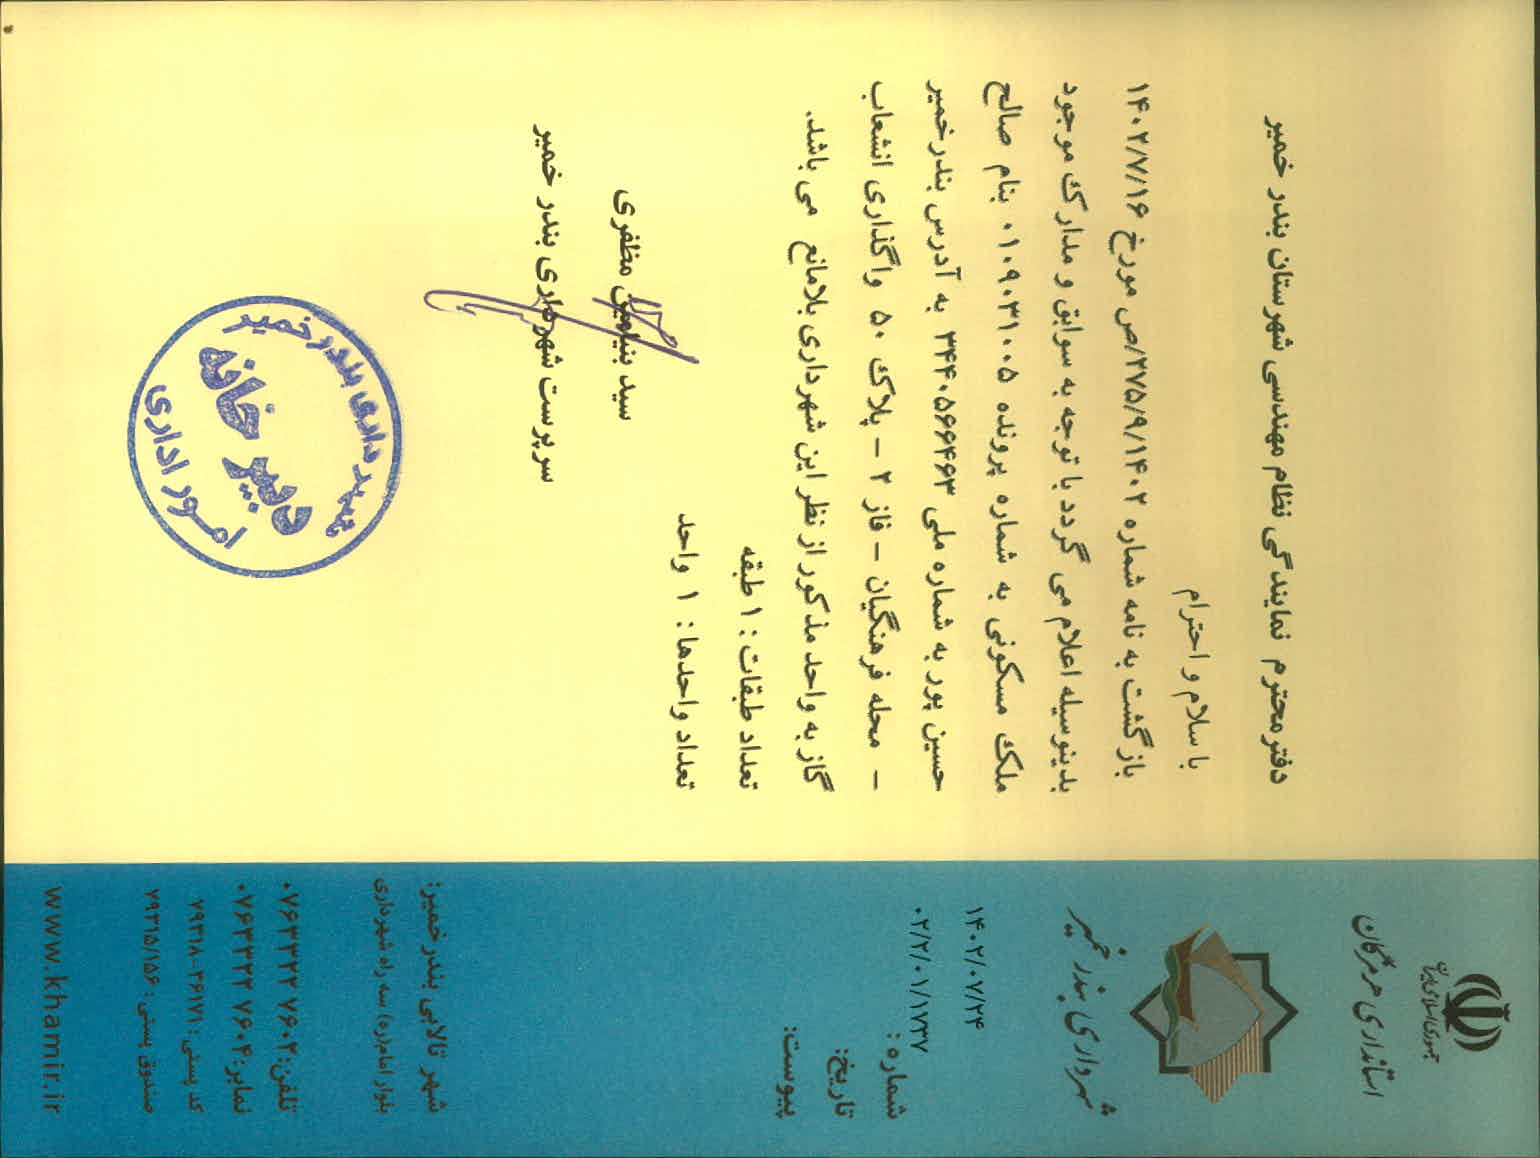 جمهوری اسلامی ایران
استانداری هرمزگان
شهرداری بندر خمیر
۱۴۰۲/۰۷/۲۴
۰۲/۲/۰۱/۱۷۳۷
شماره :
تاریخ:
پیوست:
دفتر محترم نمایندگی نظام مهندسی شهرستان بندر خمیر
با سلام و احترام
بازگشت به نامه شماره ۲۷۵/۹/۱۴۰۲/ص مورخ ۱۴۰۲/۷/۱۶
بدینوسیله اعلام می گردد با توجه به سوابق و مدارک موجود
ملک مسکونی به شماره پرونده ۰۱۰۹۰۳۱۰۰۵ بنام صالح
حسین پور به شماره ملی ۳۴۴۰۵۶۶۴۶۳ به آدرس بندرخمیر
- محله فرهنگیان - فاز ۲ - پلاک ۵۰ واگذاری انشعاب
گاز به واحد مذکور از نظر این شهرداری بلامانع می باشد.
تعداد طبقات : ۱ طبقه
تعداد واحدها : ۱ واحد
سید بنیامین مظفری
سرپرست شهرداری بندر خمیر
شهرداری بندر خمیر
دبیر خانه
امور اداری
شهر تالابی بندر خمیر:
بلوار امام(ره) سه راه شهرداری
تلفن: ۰۷۶۳۳۲۲ ۷۶۰۲
نمابر: ۰۷۶۳۳۲۲ ۷۶۰۴
کد پستی: ۷۹۳۱۸-۳۶۱۷۱
صندوق پستی: ۷۹۳۱۵/۱۵۶
www.khamir.ir